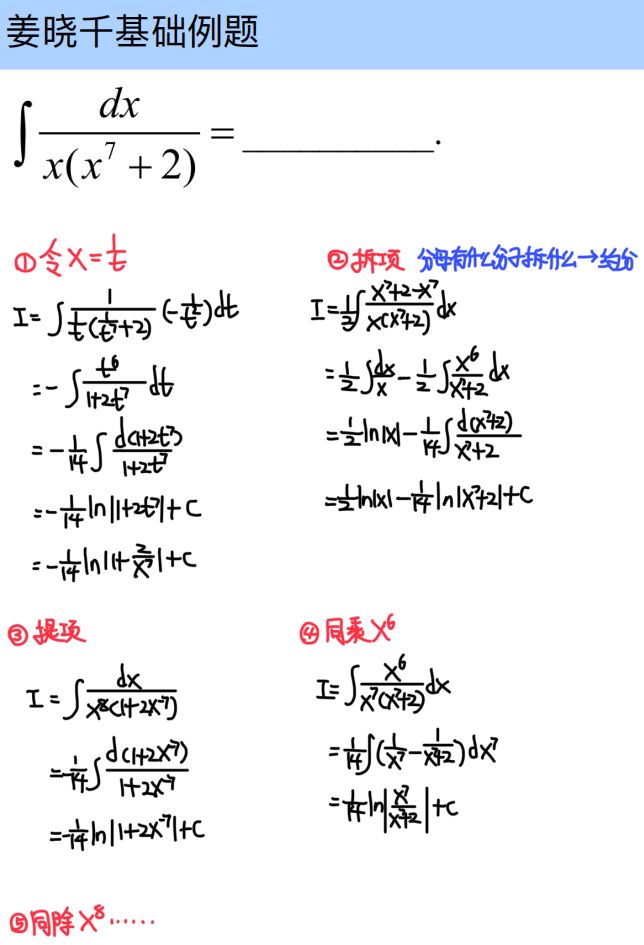 姜晓千基础例题
∫ dx / x(x⁷ + 2) = __________.
① 令 x = 1/t
I = ∫ 1 / (1/t (1/t⁷ + 2)) (-1/t²) dt
= - ∫ t⁶ / (1+2t⁷) dt
= - 1/14 ∫ d(1+2t⁷) / (1+2t⁷)
= - 1/14 ln|1+2t⁷| + C
= - 1/14 ln|1 + 2/x⁷| + C
② 拆项 分母有什么分子拆什么→约分
I = 1/2 ∫ (x⁷+2-x⁷) / x(x⁷+2) dx
= 1/2 ∫ dx/x - 1/2 ∫ x⁶/(x⁷+2) dx
= 1/2 ln|x| - 1/14 ∫ d(x⁷+2) / (x⁷+2)
= 1/2 ln|x| - 1/14 ln|x⁷+2| + C
③ 提项
I = ∫ dx / x⁸(1+2x⁻⁷)
= - 1/14 ∫ d(1+2x⁻⁷) / (1+2x⁻⁷)
= - 1/14 ln|1+2x⁻⁷| + C
④ 同乘 x⁶
I = ∫ x⁶ / x⁷(x⁷+2) dx
= 1/14 ∫ (1/x⁷ - 1/(x⁷+2)) dx⁷
= 1/14 ln|x⁷/(x⁷+2)| + C
⑤ 同除 x⁸ ······